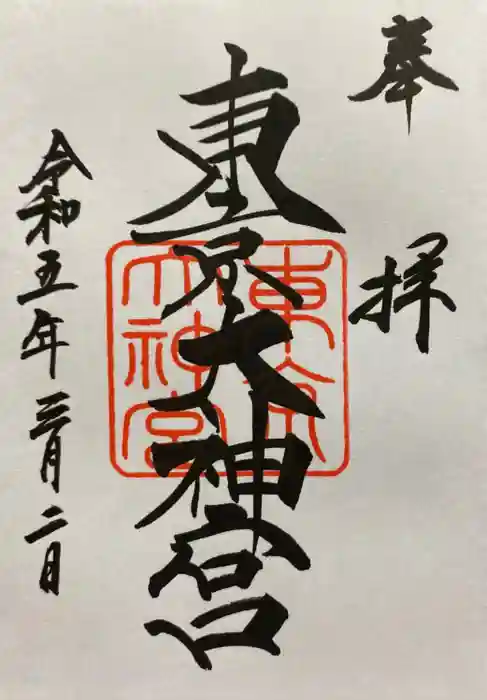 奉拝
東京大神宮
東京
大神宮
令和五年三月二日